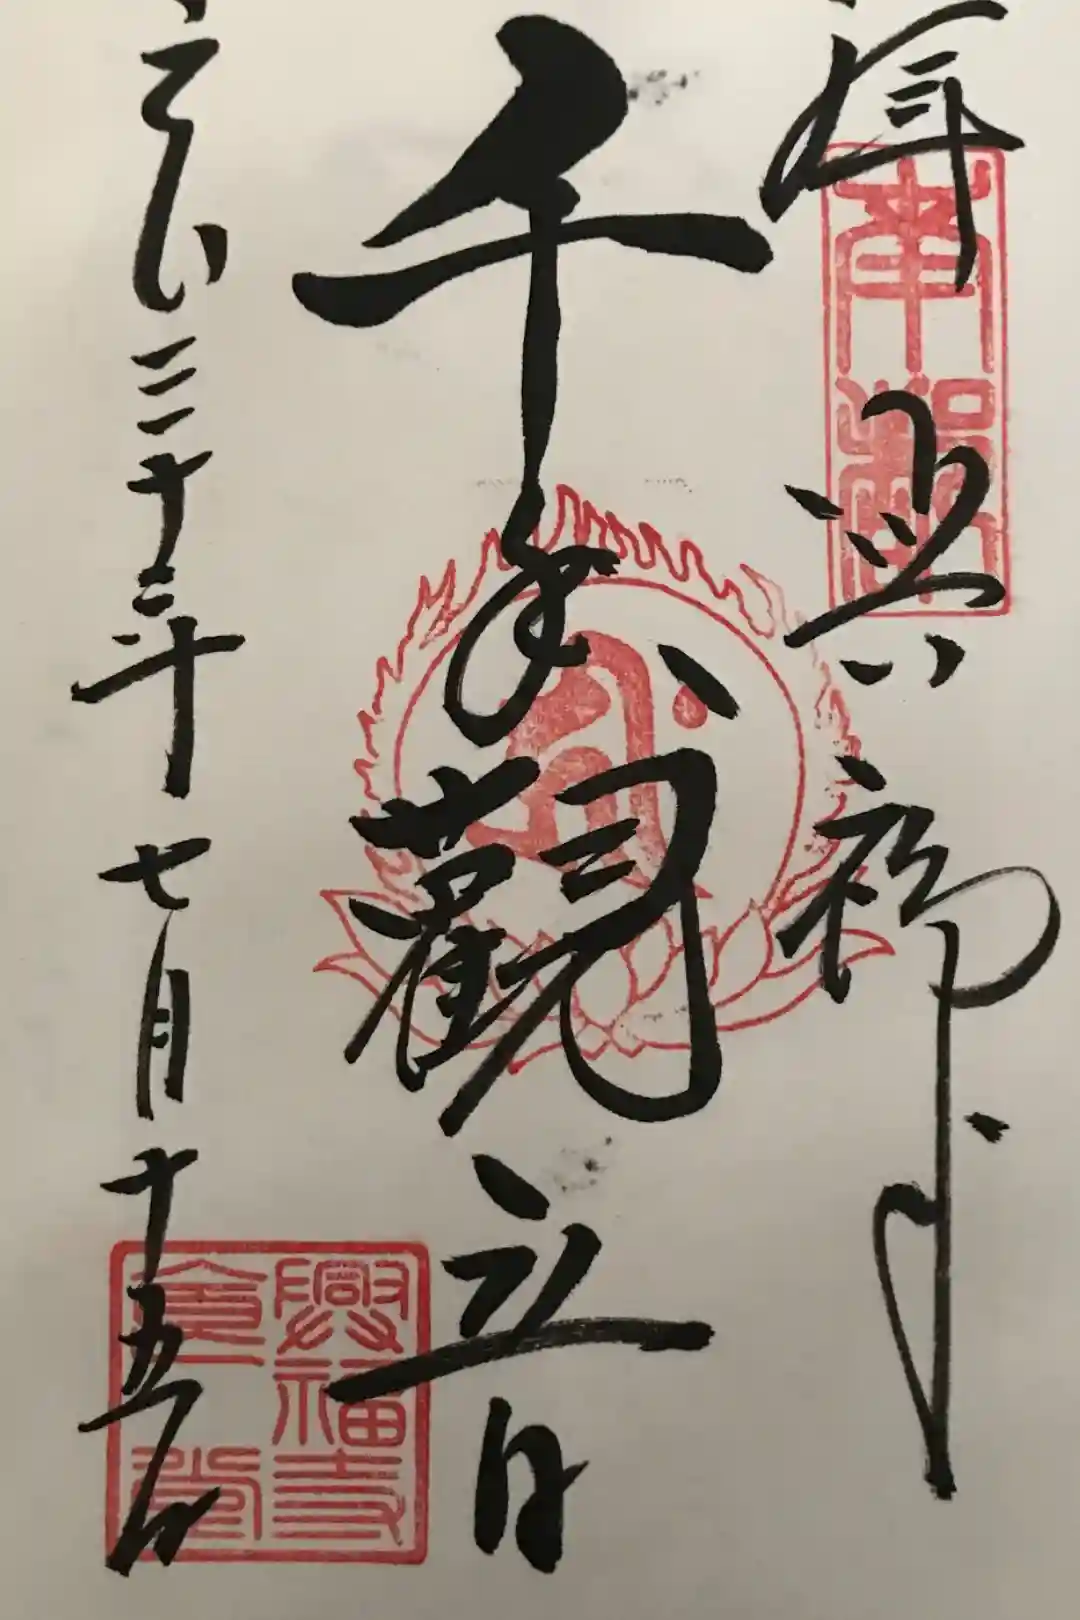 拝
南都
興福寺
千手観音
平成三十年七月十五日
興福寺
食堂